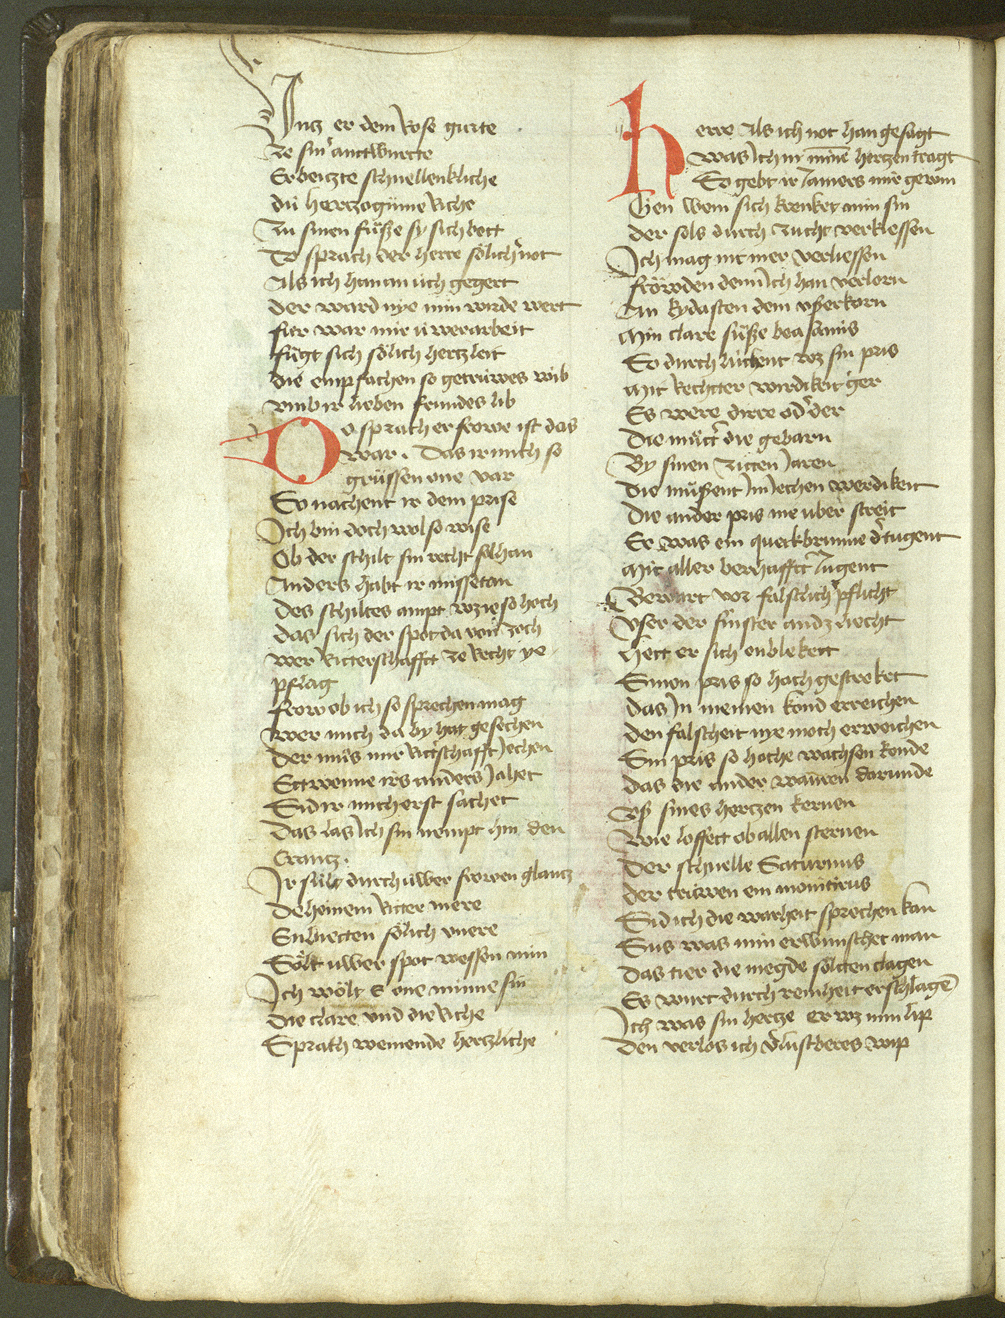 Inz er dem Rose gurte
Ze sin antwurte
Erbeitzte schnellenkliche
dú hertzoginne Riche
Zu sinen fússe sy sich bott
Do sprach der herre sölicher not
Als ich han an úch gegert
der ward nye min wirde wert
fur war mir ú werarbeit
fúgt sich sölich hertzleit
die enpfachen so getrúwes wib
vmb ir lieben frúndes lib
Do sprach er frowe ist das
war. Das ir mich so
grússen one var
So nachent ir dem prise
Ich bin doch wol so wise
Ob der schilt sin recht sol han
Anders habt ir missetan
des schiltes ampt waz ie so hoch
das sich der spot da von zoch
wer Ritterschafft ze Recht ye
pflag
frow ob ich so sprechen mag
wer mich da by hat gesechen
Der mús mir Rittschafft iechen
Ettwenne irs anders iahet
Sid ir mich erst sachet
das las ich sin nempt hin den
Crantz.
Ir súlt durch úwer frowen glantz
deheinem Ritter mere
Enbietten sölich vnere
Sölt úwer spot wessen min
Ich wölt e one minne sin
die clare vnd die Riche
Sprach weinende hertzliche
herre Als ich not han gesagt
was ich in minem hertzen tragt
So gebt ir iamers mir gewin
Gen wem sich krenket min sin
der sols durch zucht verkiessen
Ich mag nit mer verliessen
fröwden denn ich han verlorn
An Kydasten dem vsserkorn
Min clare sússe bea iamis
So durch lúchent wz sin pris
Mit Rechtter wirdikeit ger
Es were dirre oder der
Die mútter die gebarn
By sinen Zitten iaren
die mússent im iechen werdikeit
die ander pris nie úber streit
Er was ein queckbrunne der tugent
Mit aller berhafftt iugent
Bewart vor falschlicher pflicht
Vser der finster an dz liecht
Hett er sich enblekett
Sinen pris so hoch gestreket
das in niemen kond erreichen
den falscheit nye moch erweichen
Sin pris so hoche wachsen konde
das die ander waúren darunde
Vss sines hertzen kernen
wie loffett ob allen sternen
Der schnelle Saturnus
der trúwen ein monitirus
Sid ich die warheit sprechen kan
Sus was min erwúnschet man
das tier die megde sölten clagen
Es wurt durch reinheit erschlagen
Ich was sin hertze er wz min lip
den verlos ich verlustberes wip